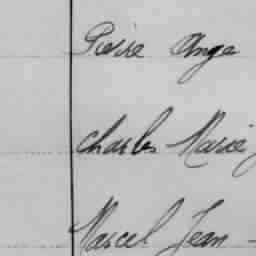 Pierre Ange
Charles Marie
Marcel Jean